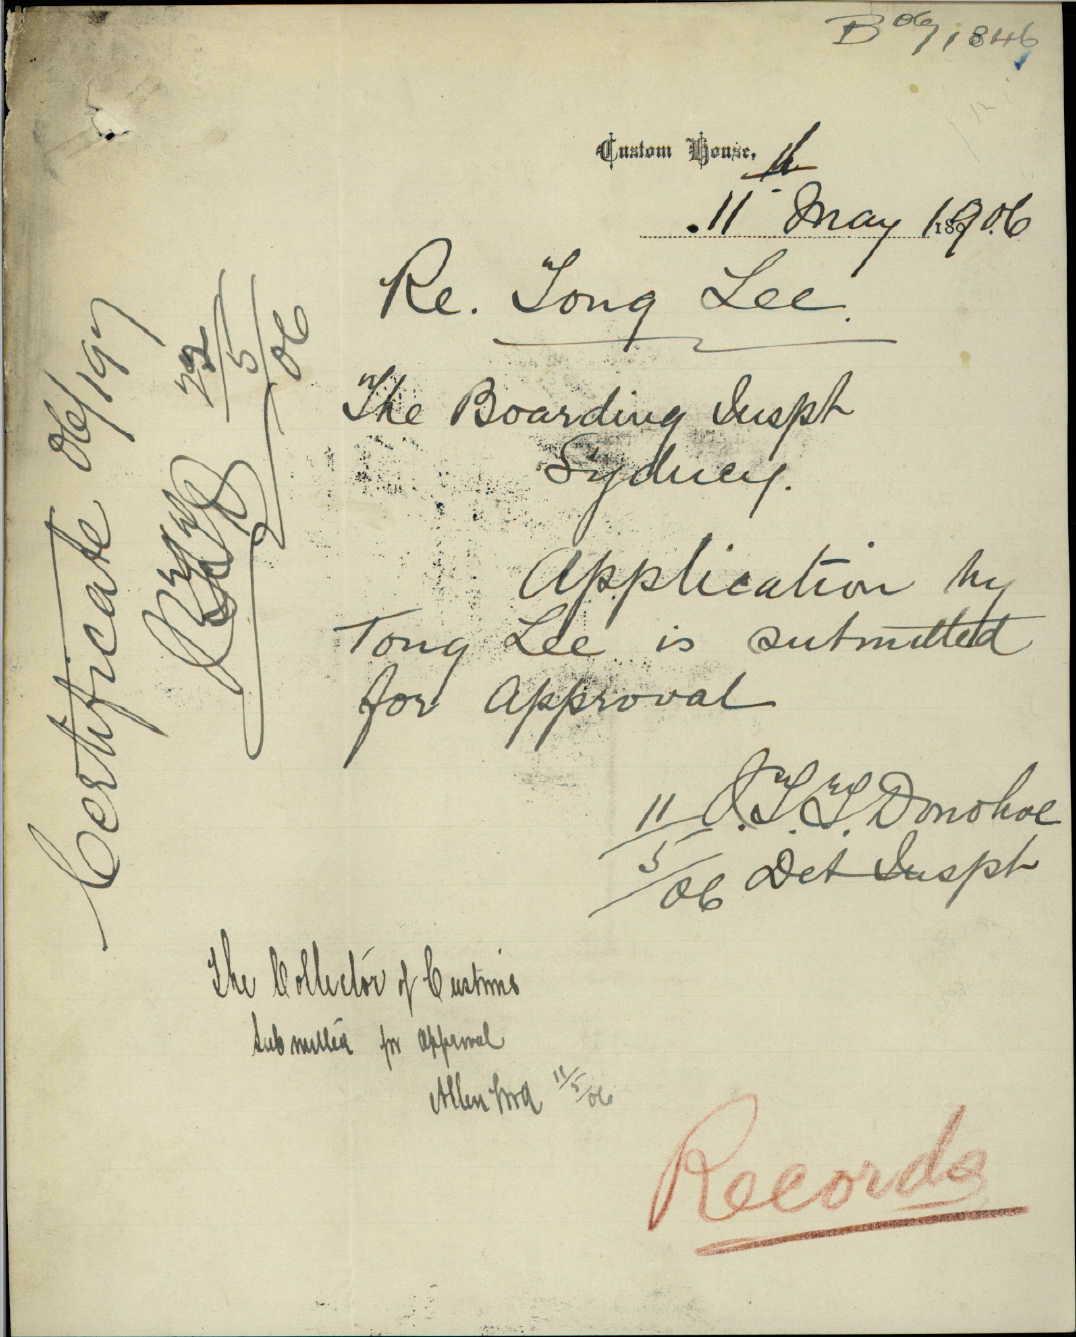 B 06/1846
Custom House,
11 May 1906
Re. Tong Lee.
The Boarding Inspr
Sydney.
Application by
Tong Lee is submitted
for approval
J.T.T. Donohoe
11/5/06 Det Inspr
The Collector of Customs
Submitted for approval
11/5/06
Records
Certificate 06/197
22/5/06